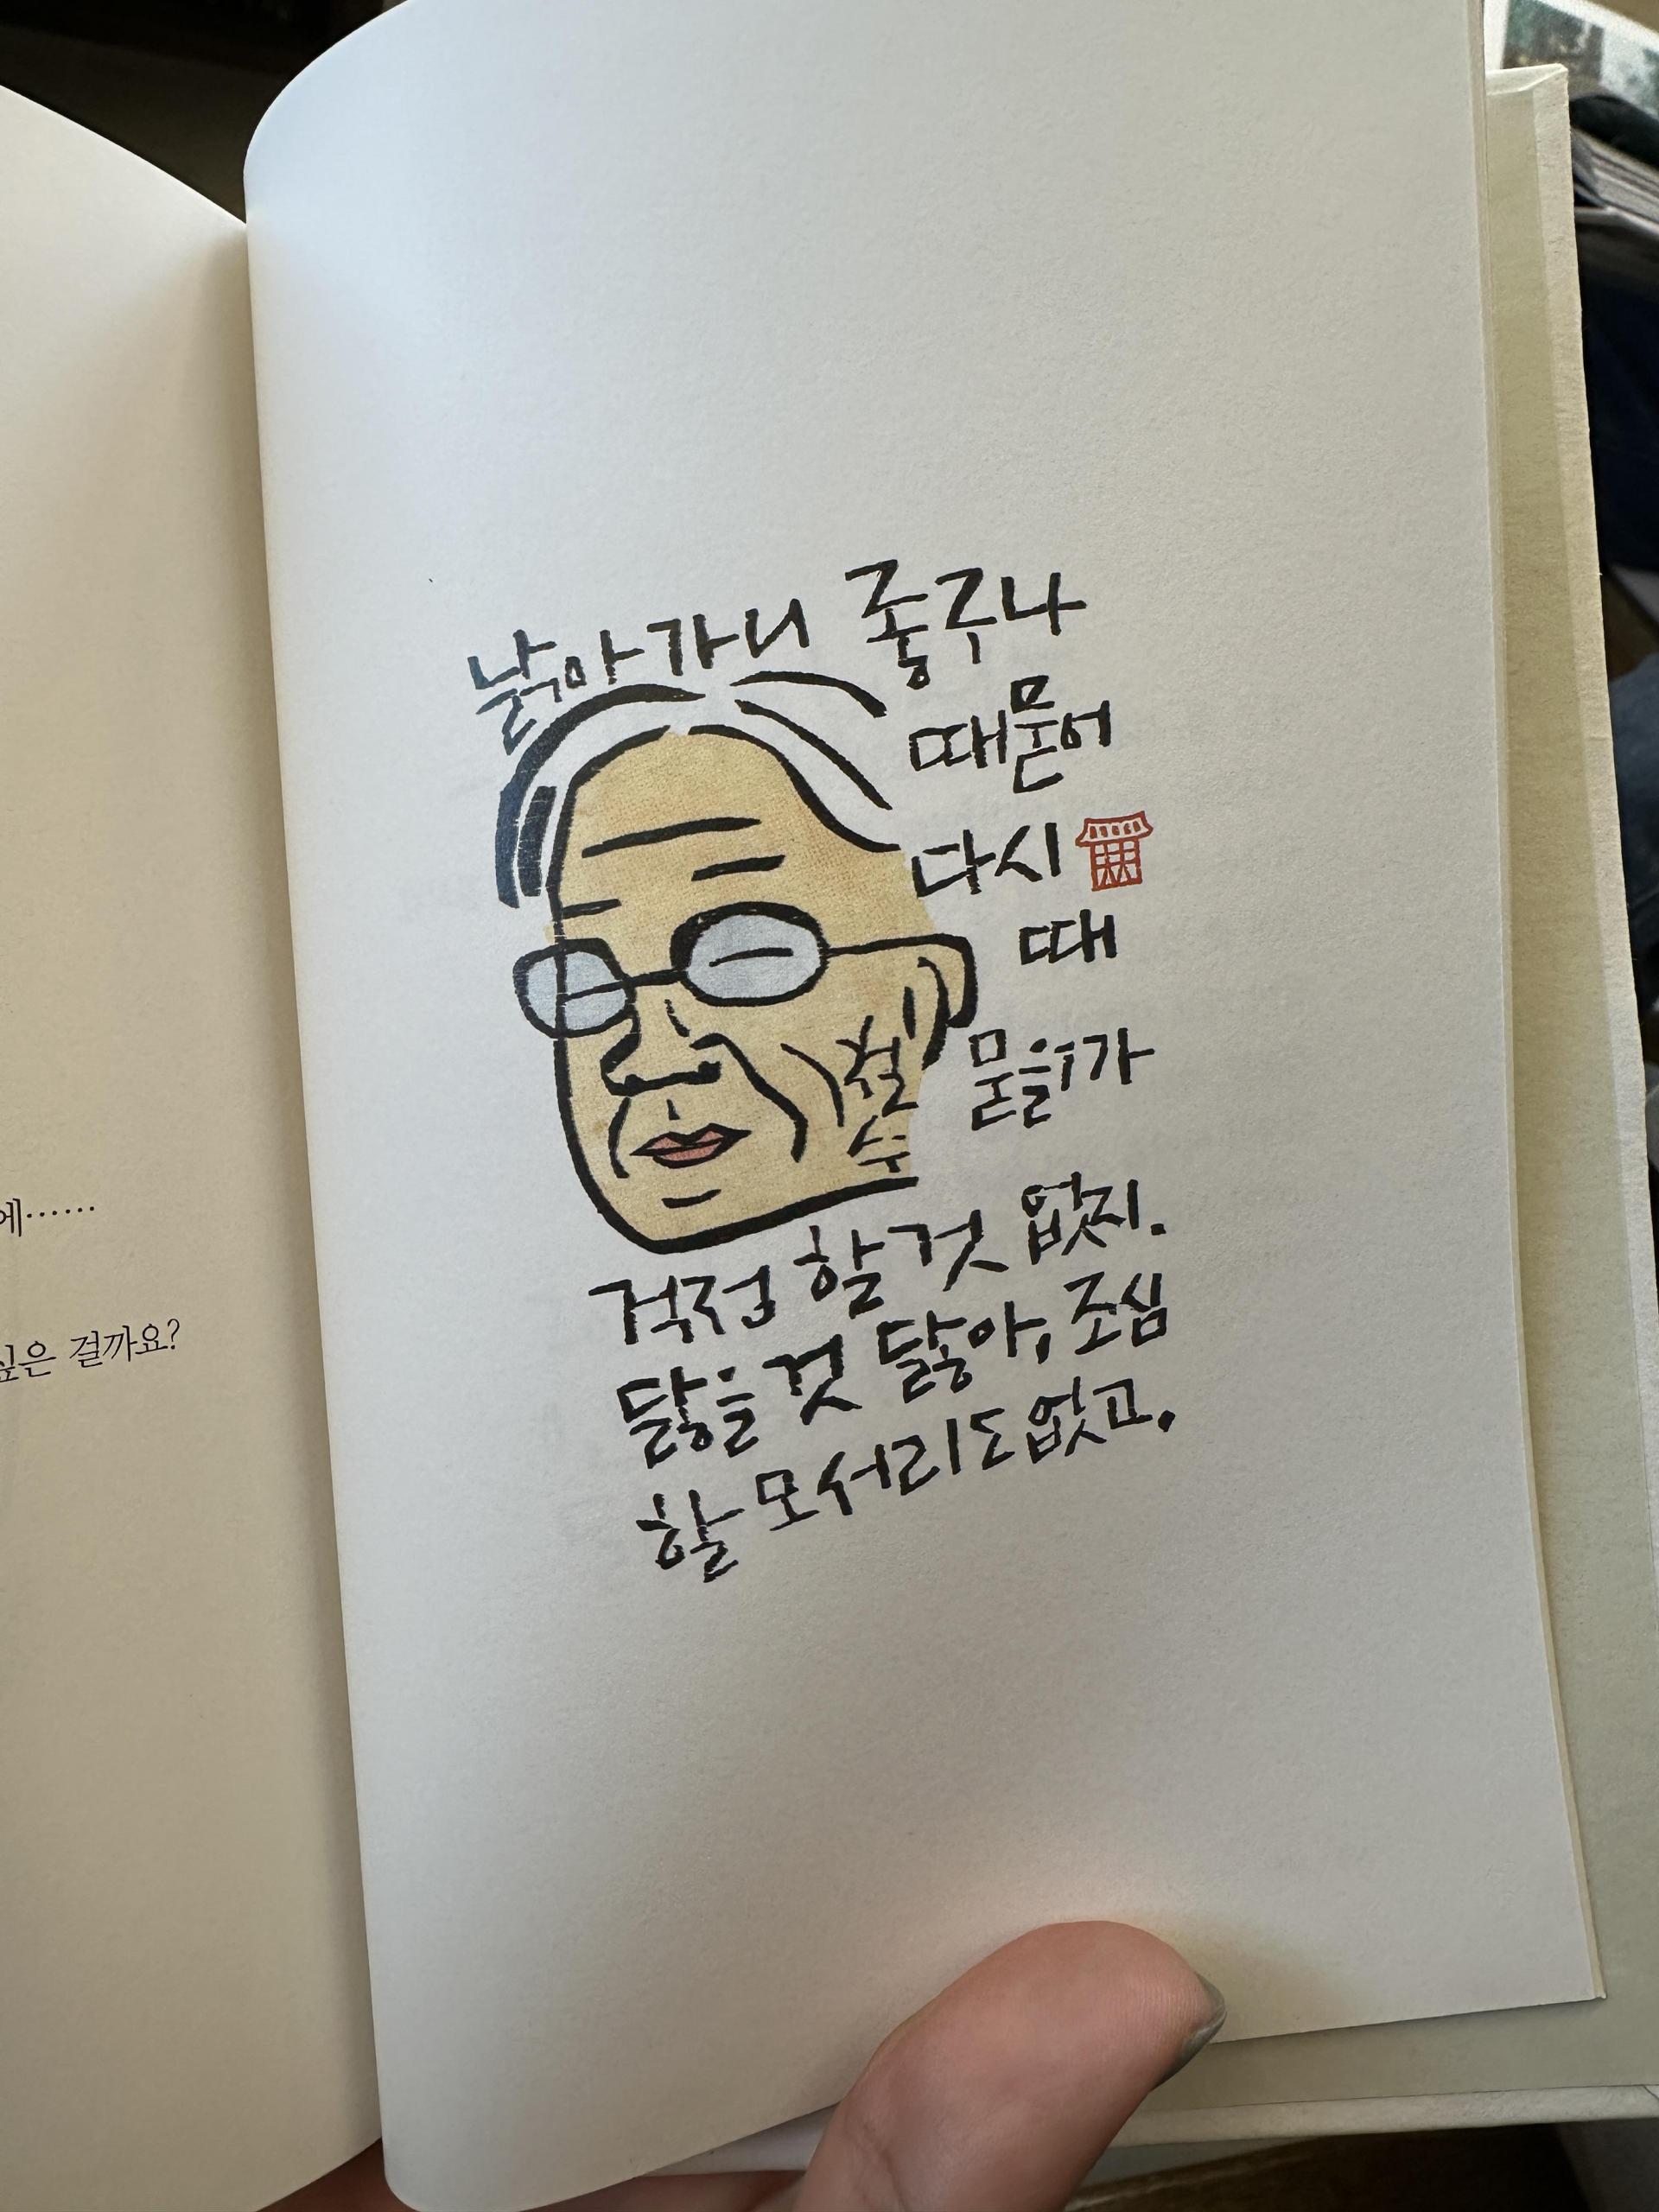 에……
싶은 걸까요?
낡아가니 좋구나
때묻어
다시
때
묻을까
철
수
걱정 할것 없지.
닳을것 닳아, 조심
할 모서리도없고.